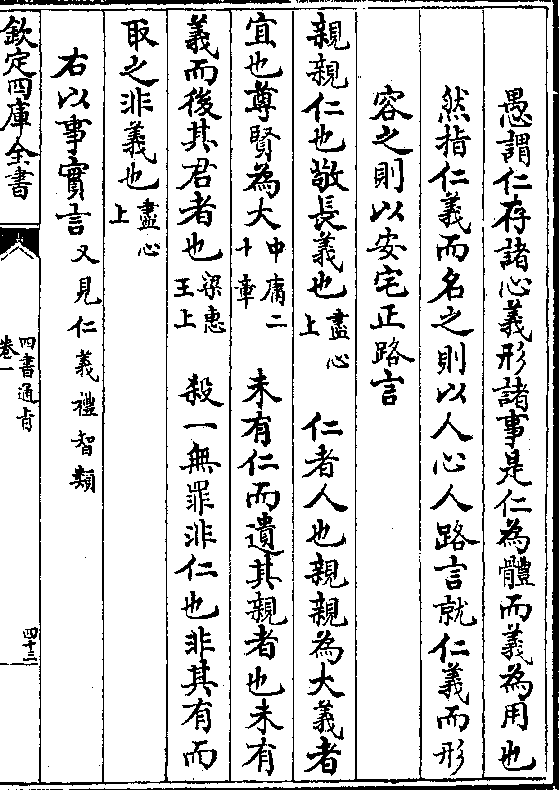 愚謂仁存諸心義形諸事是仁為體而義為用也
然指仁義而名之則以人心人路言就仁義而形
容之則以安宅正路言
親親仁也敬長義也盡心上 仁者人也親親為大義者
宜也尊賢為大中庸二十章 未有仁而遺其親者也未有
義而後其君者也梁惠王上 殺一無罪非仁也非其有而
取之非義也盡心上
右以事實言又見仁義禮智類
欽定四庫全書
四書通旨
卷一
四十三